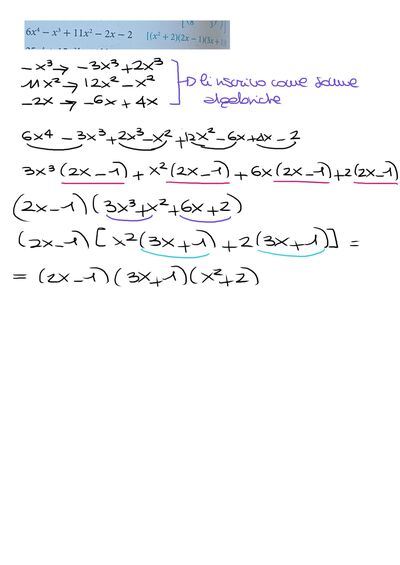 6x⁴ − x³ + 11x² − 2x − 2 [(x² + 2)(2x − 1)(3x + 1)
−x³ → −3x³ + 2x³
11x² → 12x² − x² li riscrivo come somme
−2x → −6x + 4x algebriche
6x⁴ − 3x³ + 2x³ − x² + 12x² − 6x + 4x − 2
3x³ (2x − 1) + x² (2x − 1) + 6x (2x − 1) + 2 (2x − 1)
(2x − 1) (3x³ + x² + 6x + 2)
(2x − 1) [x² (3x + 1) + 2 (3x + 1)] =
= (2x − 1) (3x + 1) (x² + 2)